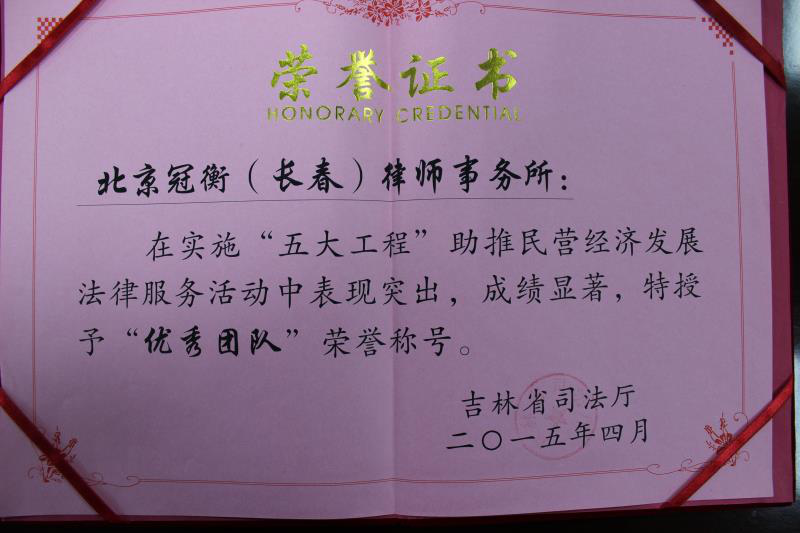 荣誉证书
HONORARY CREDENTIAL
北京冠衡（长春）律师事务所：
在实施“五大工程”助推民营经济发展
法律服务活动中表现突出，成绩显著，特授
予“优秀团队”荣誉称号。
吉林省司法厅
二〇一五年四月